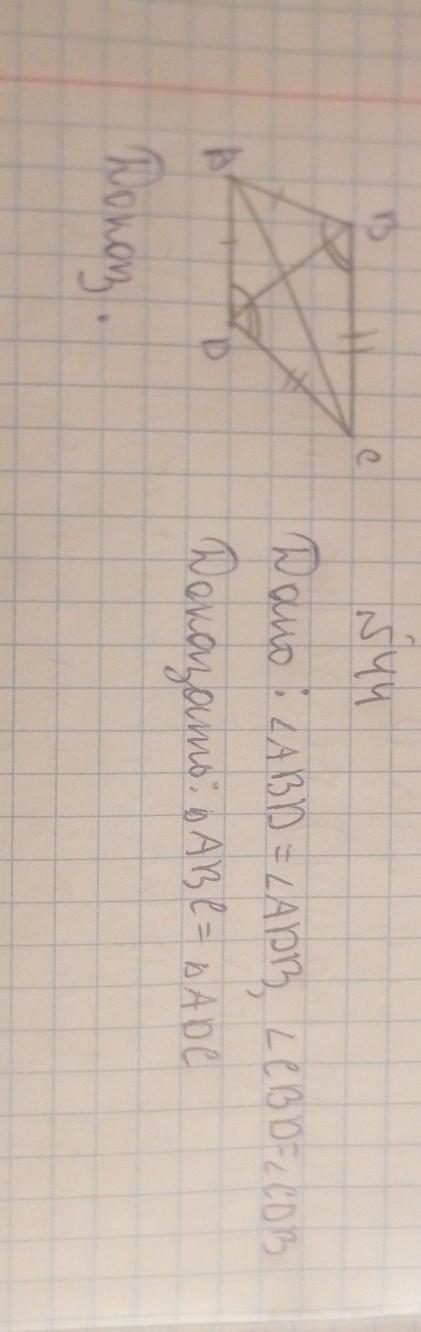 №44
B C
A D
Дано: ∠ABD = ∠ADB, ∠CBD = ∠CDB
Доказать: △ABC = △ADC
Доказ.